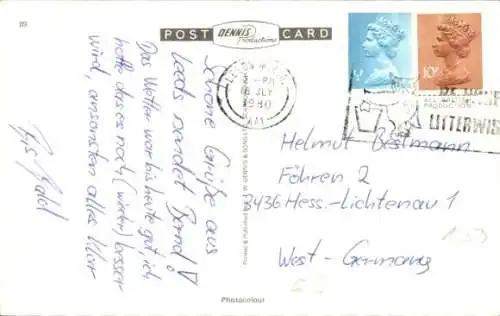 POST DENNIS Productions CARD
Schöne Grüße aus
Leeds sendet Bernd
Das Wetter war bis heute gut, ich
hoffe das es noch (wieder) besser
wird, ansonsten alles klar
Bis bald
LEEDS
PM
8 JLY
1980
10P
LITTERWISE
Helmut Bestmann
Föhren 2
3436 Hess.-Lichtenau 1
West-Germany
Photocolour